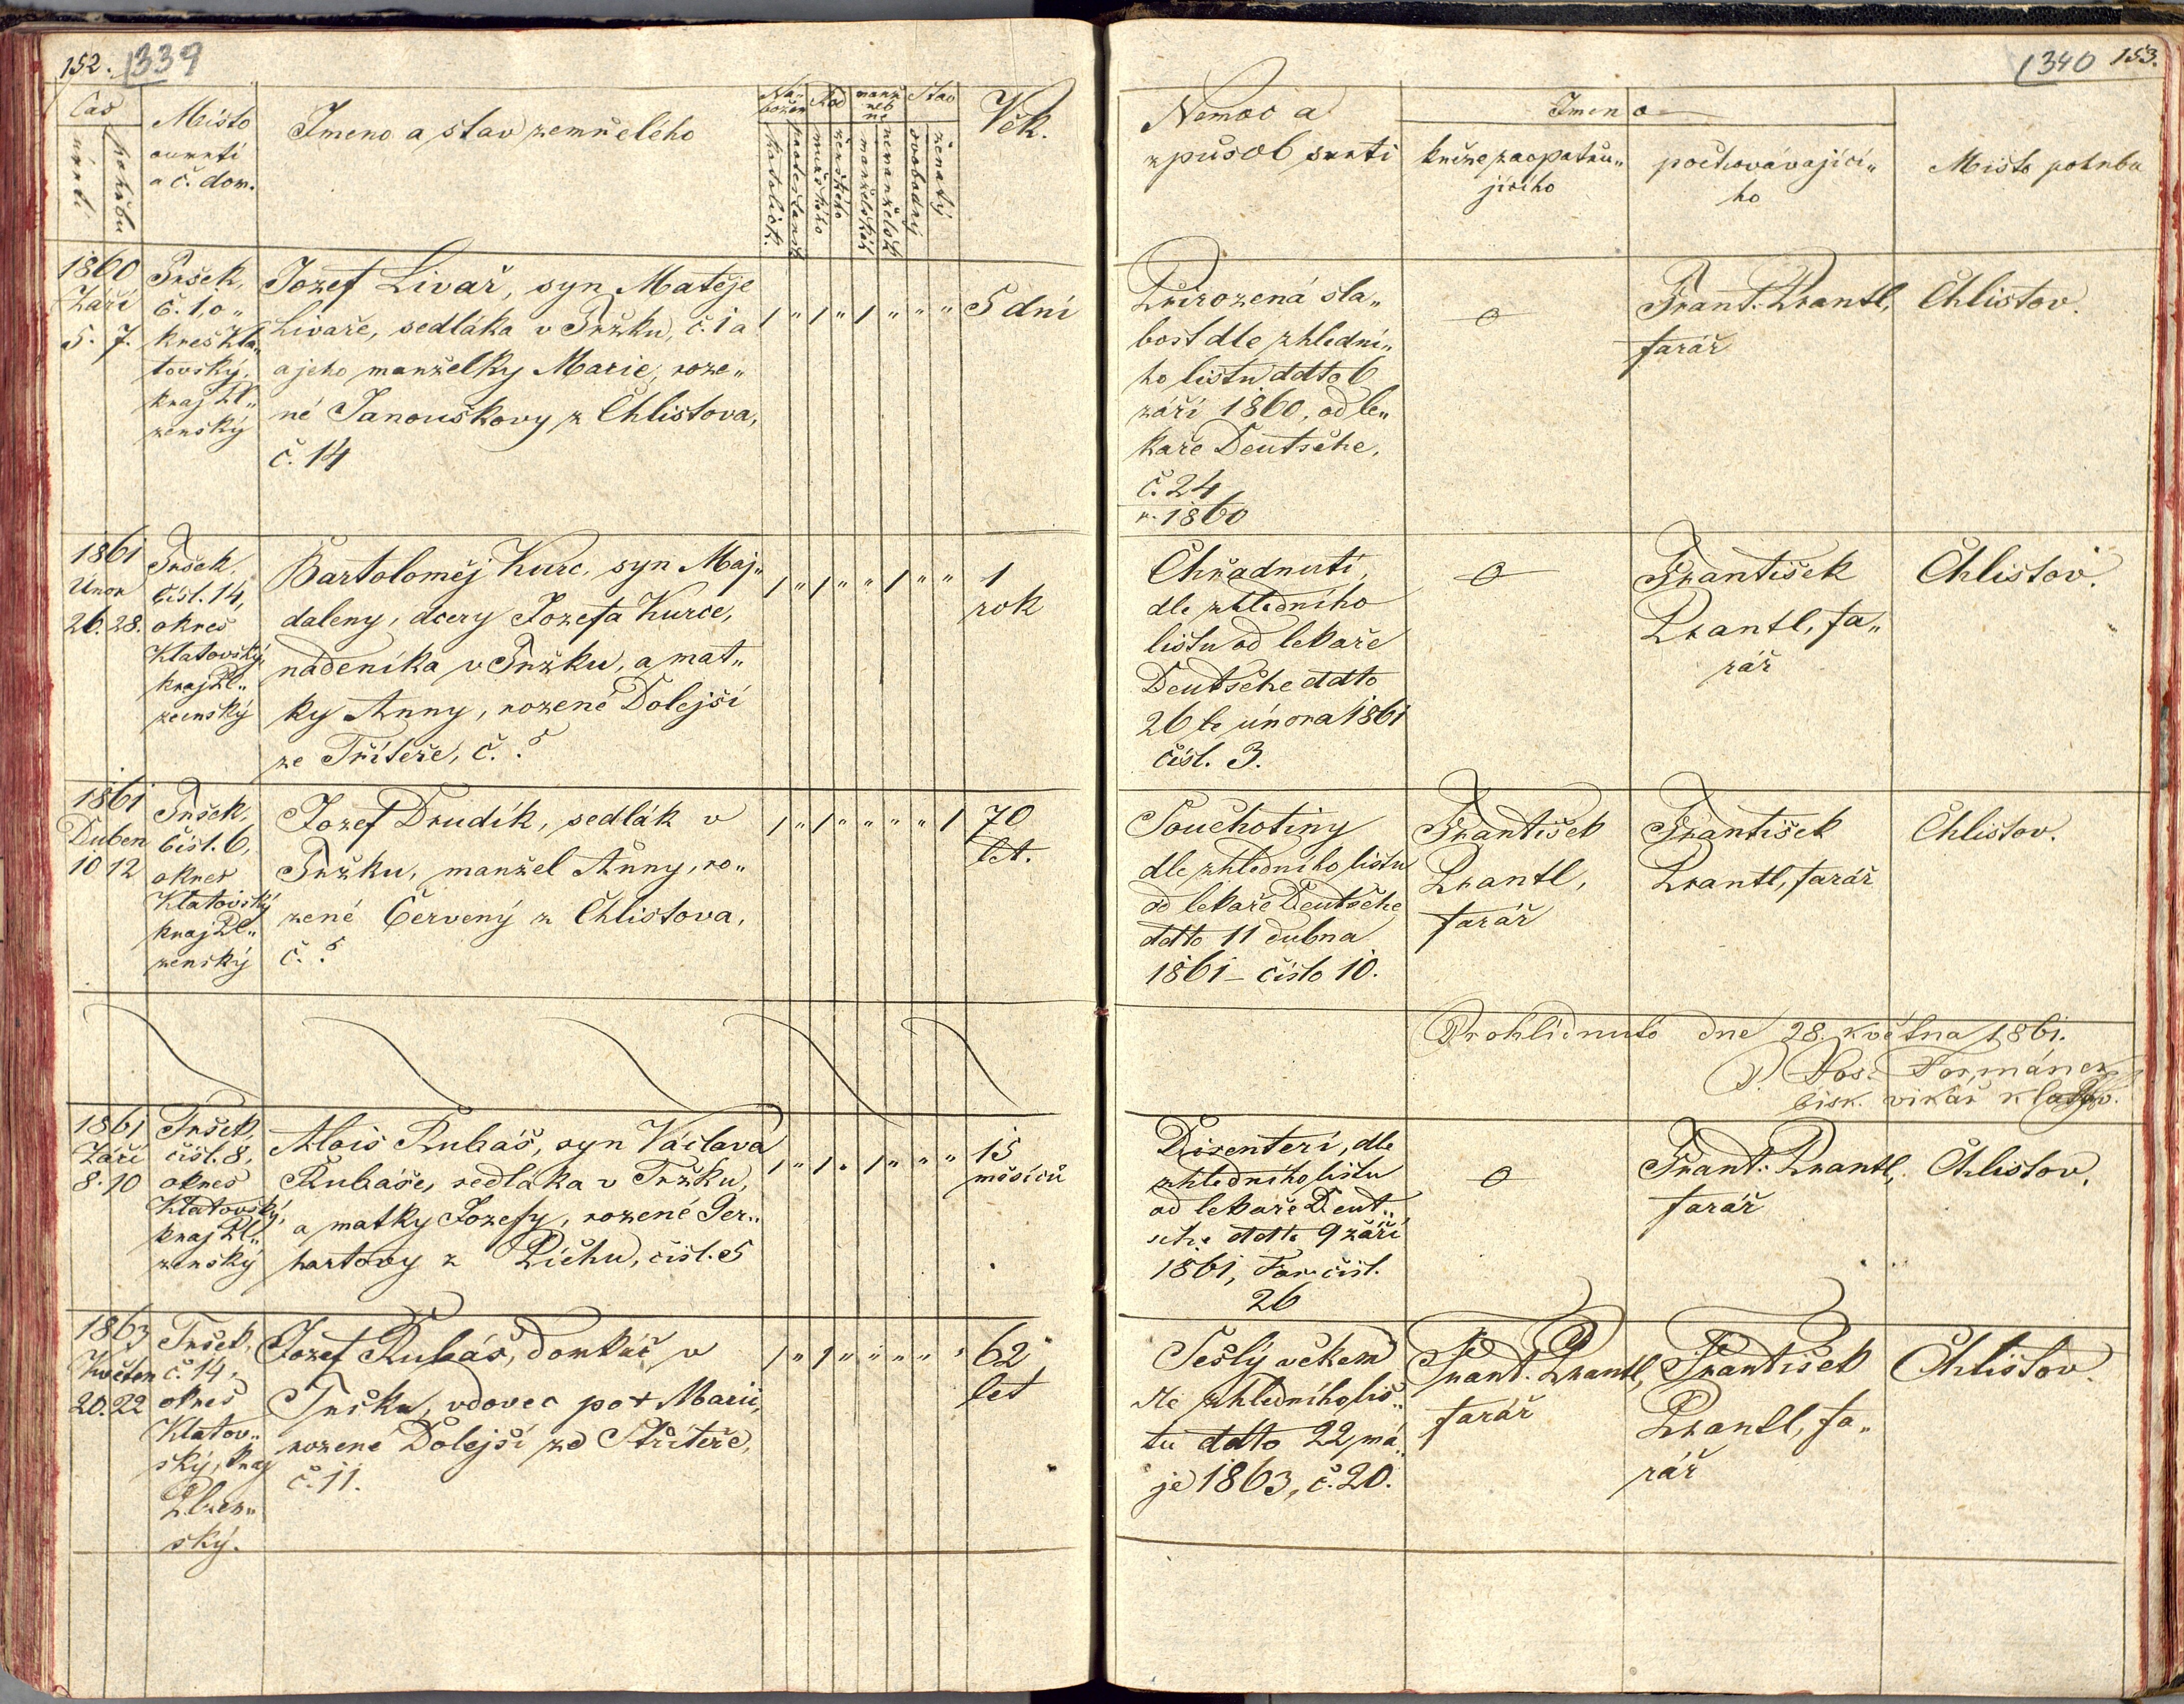 152. 339
Čas
úmrtí
pohřbu
Místo
oumrtí
a č. dom.
Jmeno a stav zemřelého
Ná-
božen
katolick.
protestansk
Rod
mužského
ženského
manž
neb
ne
manželské
nemanželsk
Stav
svobodný
ženatý
Věk.
1860
Září
5. 7.
Tršek,
č. 1, o„
kres Kla„
tovský,
kraj Pl„
zenský
Jozef Livař, syn Matěje
Livaře, sedláka v Tržku, č. 1 a
a jeho manželky Marie, roze„
né Janouškovy z Chlistova,
č. 14
1 „ 1 „ 1 „ „ „
5 dní
1861
Unor
26. 28.
Tršek,
čísl. 14,
okres
Klatovský,
kraj Pl„
zenský
Bartoloměj Kurc, syn Maj„
daleny, dcery Jozefa Kurce,
nádeníka v Tržku, a mat„
ky Anny, rozené Dolejší
ze Tříteře, č. ?
1 „ 1 „ „ 1 „ „
1
rok
1861
Duben
10 12
Tršek,
čísl. 6,
okres
Klatovský
kraj Pl„
zenský
Jozef Drudík, sedlák v
Tržku, manžel Anny, ro„
zené Červený z Chlistova,
č. ?
1 „ 1 „ „ „ „ 1
70
let.
1861
Září
8. 10
Tršek,
čísl. 8,
okres
Klatovský,
kraj Pl„
zenský
Alois Rubáš, syn Václava
Rubáše, sedláka v Tržku,
a matky Jozefy, rozené Ger„
hartovy z Píchu, čísl. 5
1 „ 1 „ 1 „ „ „
15
měsíců
1863
Květen
20. 22
Tršek,
č. 14,
okres
Klatov„
ský, kraj
Plzen„
ský.
Jozef Rubáš, domkář v
Tršku, vdovec po † Marii,
rozené Dolejší ze Stříteře,
č. 11.
62
let
1340 153.
Nemoc a
způsob smrti
Jmeno
kněze zaopatřu„
jícího
pochovávající„
ho
Místo pohřbu
Přirozená sla„
bost dle zhlední„
ho listu ddto 6
září 1860, od le„
kaře Deutsche,
č. 24
r. 1860
0
Frant. Krantl,
farář
Chlistov.
Chřadnutí,
dle zhledního
listu od lekaře
Deutsche ddto
26 le února 1861
čísl. 3.
0
František
Krantl, fa„
rář
Chlistov.
Souchotiny
dle zhledního listu
od lekaře Deutsche
ddto 11 dubna
1861 – číslo 10.
František
Krantl,
farář
František
Krantl, farář
Chlistov.
Prohlídnuto dne 28. května 1861.
Jos. Formánek
bisk. vikář
Disenterí, dle
zhledního listu
od lekaře Deut„
sche ddto 9 září
1861, Far. čísl.
26
0
Frant. Krantl,
farář
Chlistov.
Sešlý věkem
dle zhledního lis„
tu ddto 22 má„
je 1863, č. 20.
Frant. Krantl,
farář
František
Krantl, fa„
rář
Chlistov.